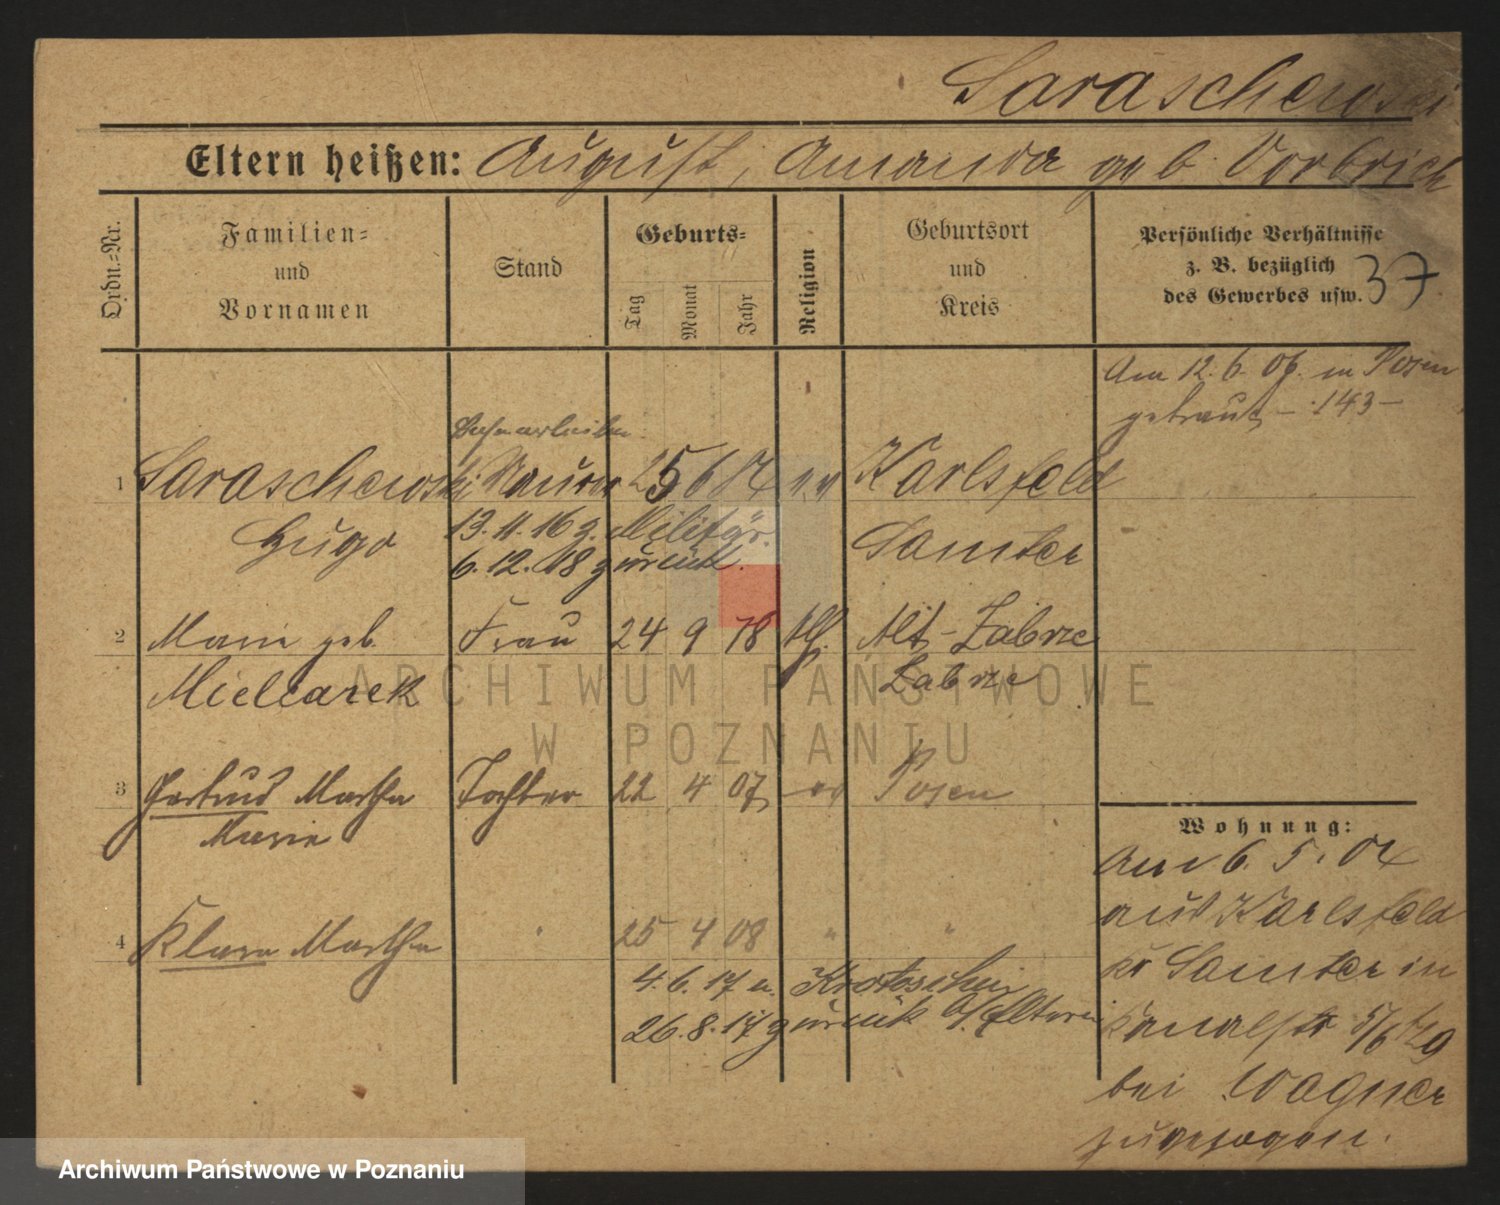 Saraschewski
Eltern heißen: August, Amanda geb. Vorbrich
Ordn.-Nr.
Familien-
und
Vornamen
Stand
Geburts-
Tag
Monat
Jahr
Religion
Geburtsort
und
Kreis
Persönliche Verhältnisse
z. B. bezüglich
des Gewerbes usw. 37
Am 12. 6. 06. in Posen
getraut – 143 –
1 Saraschewski Maurer 25 6 ev Karlsfeld
Hugo
13. 11. 16 z. Militär.
6. 12. 18 zurück.
Samter
2 Marie geb. Frau 24 9 78 kth. Alt-Zabrze
Mielcarek
Zabrze
3 Gertrud Martha Tochter 22 4 07 ev Posen
Marie
4 Klara Martha " 25 4 08 " "
4. 6. 17 n. Krotoschin
26. 8. 17 zurück b/Eltern
Wohnung:
Am 6. 5. 04
aus Karlsfeld
Kr Samter in
Kanalstr 5/6
bei Wagner
zugezogen.
ARCHIWUM PAŃSTWOWE
W POZNANIU
Archiwum Państwowe w Poznaniu